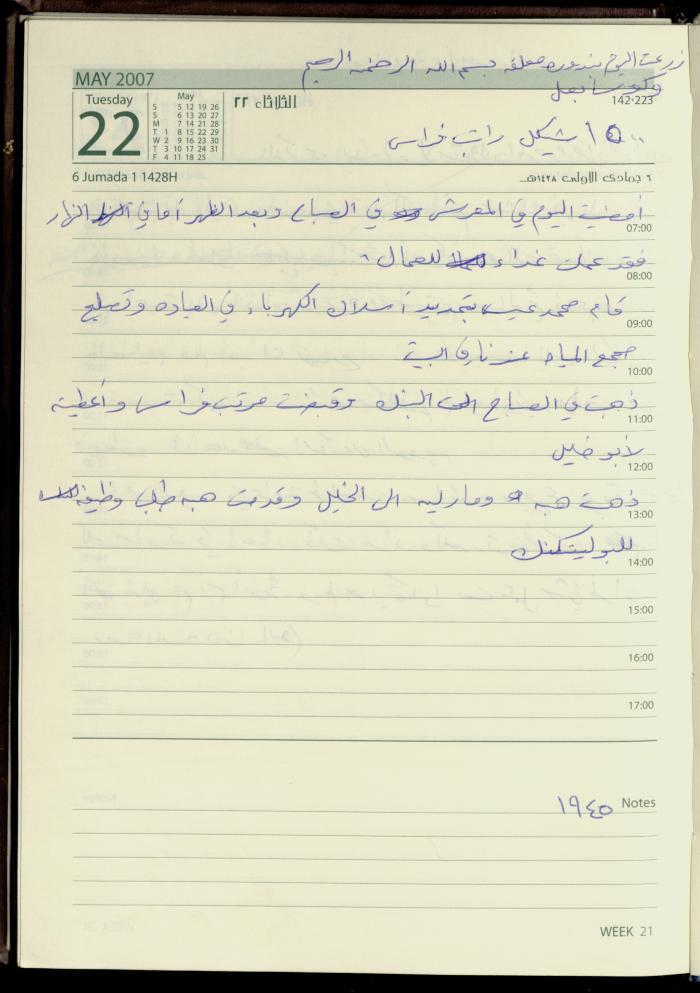 زرعت اليوم بندوره معلقه بسم الله الرحمن الرحيم
وكوسا بعل
MAY 2007
142-223
Tuesday
22
May
S 5 12 19 26
S 6 13 20 27
M 7 14 21 28
T 1 8 15 22 29
W 2 9 16 23 30
T 3 10 17 24 31
F 4 11 18 25
الثلاثاء ٢٢
١٥٠٠ شيكل راتب فراس
6 Jumada 1 1428H
٦ جمادى الاولى ١٤٢٨هـ
أمضيت اليوم في المفرش في الصباح وبعد الظهر أما في النهار
07:00
فقد عملت غداء للعمال
08:00
قام محمد عيسى بتجديد أسلاك الكهرباء في العياده وتصليح
09:00
مجمع المياه عندنا في البيت
10:00
ذهبت في الصباح الى البنك وقبضت مرتب فراس وأعطيته
11:00
لأبو خليل
12:00
ذهبت هبه و ماريه الى الخليل وقدمت هبه طلب وظيفة
13:00
للبوليتكنك
14:00
15:00
16:00
17:00
Notes
١٩٤٥
WEEK 21